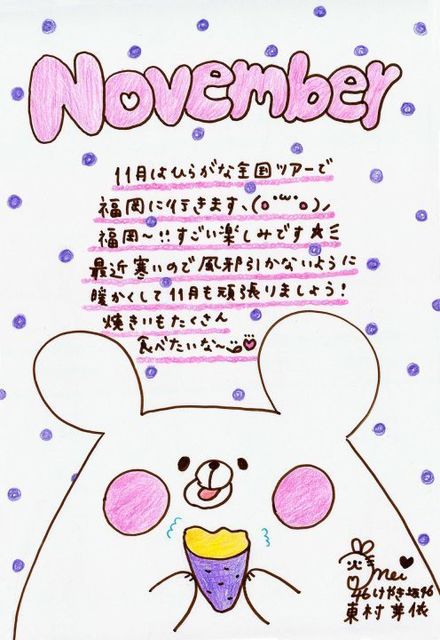 November
11月はひらがな全国ツアーで
福岡に行きます、(o・ω・o)ノ
福岡〜!!すごい楽しみです★ミ
最近寒いので風邪引かないように
暖かくして11月も頑張りましょう!
焼きいもたくさん
食べたいな〜
mei
けやき坂46
東村芽依